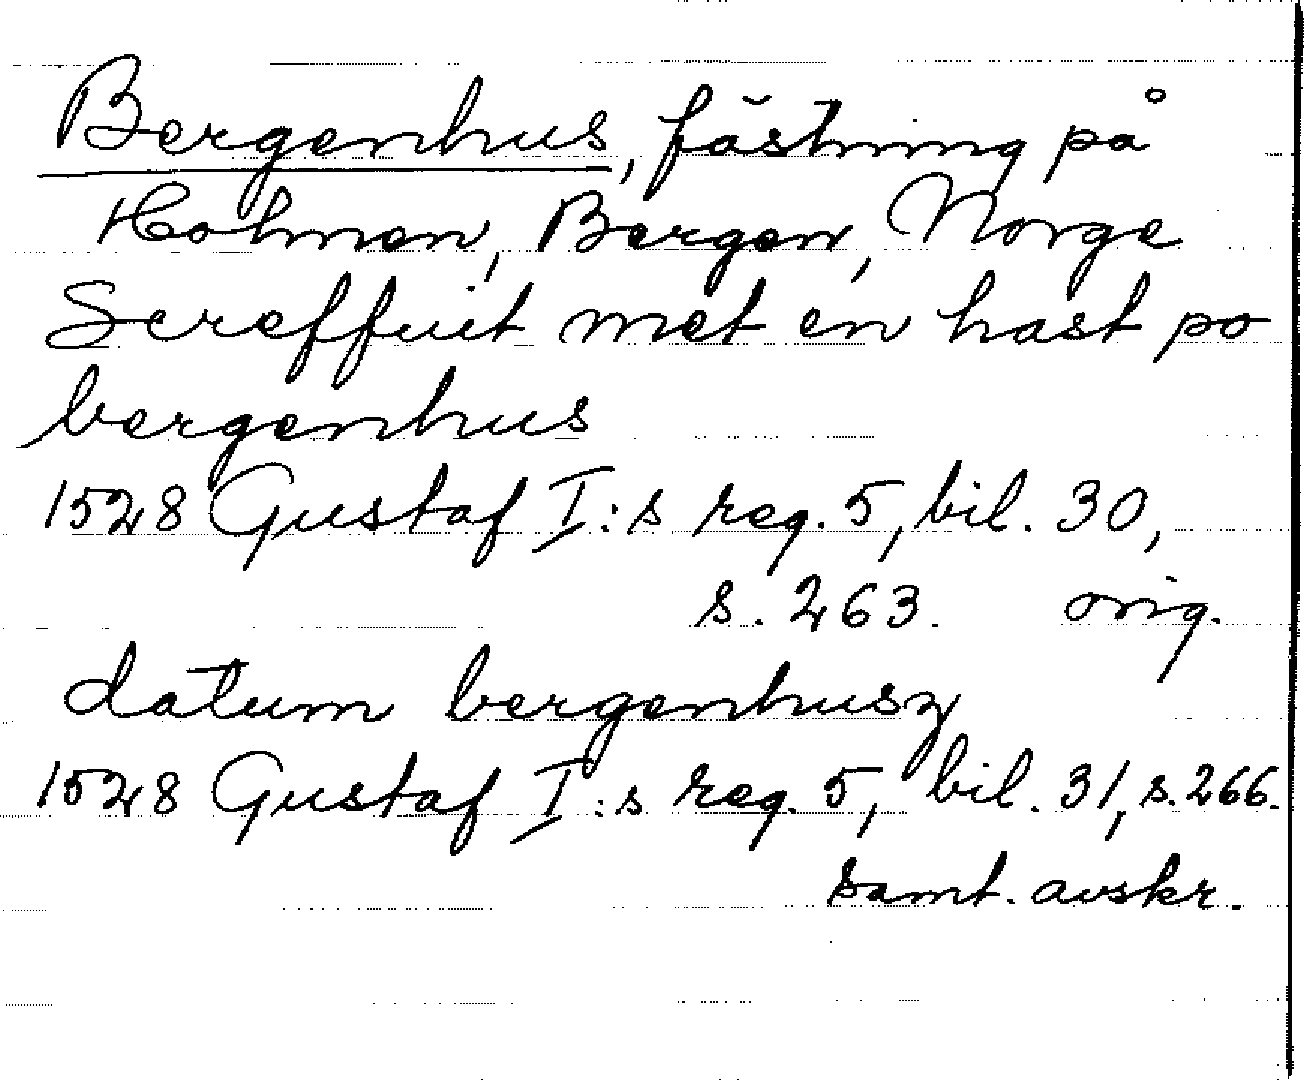 Bergenhus, fästning på
Holmen, Bergen, Norge
Screffuit met en hast po
bergenhus
1528 Gustaf I:s reg. 5, bil. 30,
s. 263. orig.
datum bergenhusz
1528 Gustaf I:s reg. 5, bil. 31, s. 266.
samt. avskr.